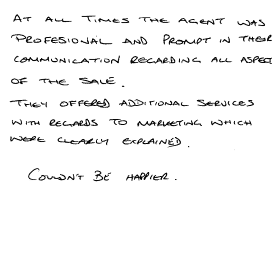 AT ALL TIMES THE AGENT WAS
PROFESIONAL AND PROMPT IN THEIR
COMMUNICATION REGARDING ALL ASPEC
OF THE SALE.
THEY OFFERED ADDITIONAL SERVICES
WITH REGARDS TO MARKETING WHICH
WERE CLEARLY EXPLAINED.
COULDN'T BE HAPPIER.